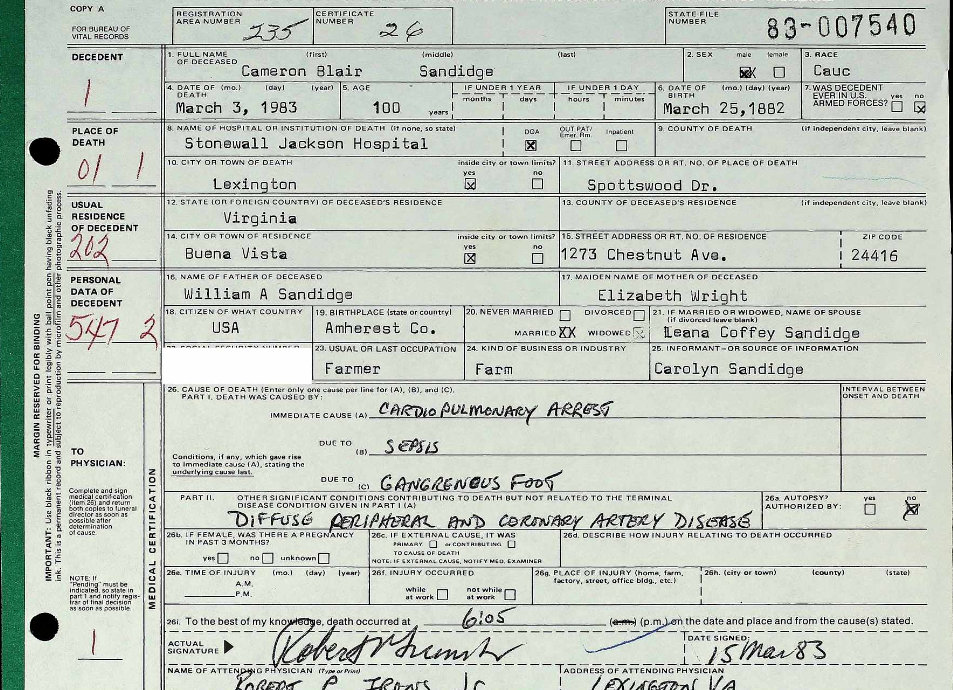 COPY A
FOR BUREAU OF VITAL RECORDS
REGISTRATION AREA NUMBER 235
CERTIFICATE NUMBER 26
STATE FILE NUMBER 83-007540
DECEDENT
1
1. FULL NAME OF DECEASED (first) (middle) (last)
Cameron Blair Sandidge
2. SEX male female
XX
3. RACE
Cauc
4. DATE OF DEATH (mo.) (day) (year)
March 3, 1983
5. AGE
100 years
IF UNDER 1 YEAR
months days
IF UNDER 1 DAY
hours minutes
6. DATE OF BIRTH (mo.) (day) (year)
March 25,1882
7. WAS DECEDENT EVER IN U.S. ARMED FORCES? yes no
X
PLACE OF DEATH
01 1
8. NAME OF HOSPITAL OR INSTITUTION OF DEATH (if none, so state)
Stonewall Jackson Hospital
DOA OUT PAT/ Emer. Rm. Inpatient
X
9. COUNTY OF DEATH (if independent city, leave blank)
10. CITY OR TOWN OF DEATH inside city or town limits?
yes no
Lexington X
11. STREET ADDRESS OR RT. NO. OF PLACE OF DEATH
Spottswood Dr.
USUAL RESIDENCE OF DECEDENT
202
12. STATE (OR FOREIGN COUNTRY) OF DECEASED'S RESIDENCE
Virginia
13. COUNTY OF DECEASED'S RESIDENCE (if independent city, leave blank)
14. CITY OR TOWN OF RESIDENCE inside city or town limits?
yes no
Buena Vista X
15. STREET ADDRESS OR RT. NO. OF RESIDENCE ZIP CODE
1273 Chestnut Ave. 24416
PERSONAL DATA OF DECEDENT
547 2
16. NAME OF FATHER OF DECEASED
William A Sandidge
17. MAIDEN NAME OF MOTHER OF DECEASED
Elizabeth Wright
18. CITIZEN OF WHAT COUNTRY
USA
19. BIRTHPLACE (state or country)
Amherst Co.
20. NEVER MARRIED DIVORCED
MARRIED XX WIDOWED
21. IF MARRIED OR WIDOWED, NAME OF SPOUSE
(if divorced leave blank)
Leana Coffey Sandidge
23. USUAL OR LAST OCCUPATION
Farmer
24. KIND OF BUSINESS OR INDUSTRY
Farm
25. INFORMANT-OR SOURCE OF INFORMATION
Carolyn Sandidge
MARGIN RESERVED FOR BINDING
IMPORTANT: Use black ribbon in typewriter or print legibly with ball point pen having black unfading
ink. This is a permanent record and subject to reproduction by microfilm and other photographic process.
TO PHYSICIAN:
Complete and sign
medical certification
(item 26) and return
both copies to funeral
director as soon as
possible after
determination
of cause.
NOTE: If
"Pending" must be
indicated, so state in
part 1 and notify regis-
trar of final decision
as soon as possible.
1
MEDICAL CERTIFICATION
26. CAUSE OF DEATH (Enter only one cause per line for (A), (B), and (C).
PART I. DEATH WAS CAUSED BY:
INTERVAL BETWEEN ONSET AND DEATH
IMMEDIATE CAUSE (A) CARDIOPULMONARY ARREST
DUE TO (B) SEPSIS
Conditions, if any, which gave rise
to immediate cause (A), stating the
underlying cause last.
DUE TO (C) GANGRENOUS FOOT
PART II. OTHER SIGNIFICANT CONDITIONS CONTRIBUTING TO DEATH BUT NOT RELATED TO THE TERMINAL
DISEASE CONDITION GIVEN IN PART I (A)
DIFFUSE PERIPHERAL AND CORONARY ARTERY DISEASE
26a. AUTOPSY? yes no
AUTHORIZED BY: X
26b. IF FEMALE, WAS THERE A PREGNANCY
IN PAST 3 MONTHS?
yes no unknown
26c. IF EXTERNAL CAUSE, IT WAS
PRIMARY or CONTRIBUTING
TO CAUSE OF DEATH
NOTE: IF EXTERNAL CAUSE, NOTIFY MED. EXAMINER
26d. DESCRIBE HOW INJURY RELATING TO DEATH OCCURRED
26e. TIME OF INJURY (mo.) (day) (year)
A.M.
P.M.
26f. INJURY OCCURRED
while at work not while at work
26g. PLACE OF INJURY (home, farm,
factory, street, office bldg., etc.)
26h. (city or town) (county) (state)
26i. To the best of my knowledge, death occurred at 6:05 (a.m.) (p.m.) on the date and place and from the cause(s) stated.
ACTUAL SIGNATURE
DATE SIGNED:
15 Mar 83
NAME OF ATTENDING PHYSICIAN (Type or Print)
ROBERT P IRONS Jr
ADDRESS OF ATTENDING PHYSICIAN
LEXINGTON VA